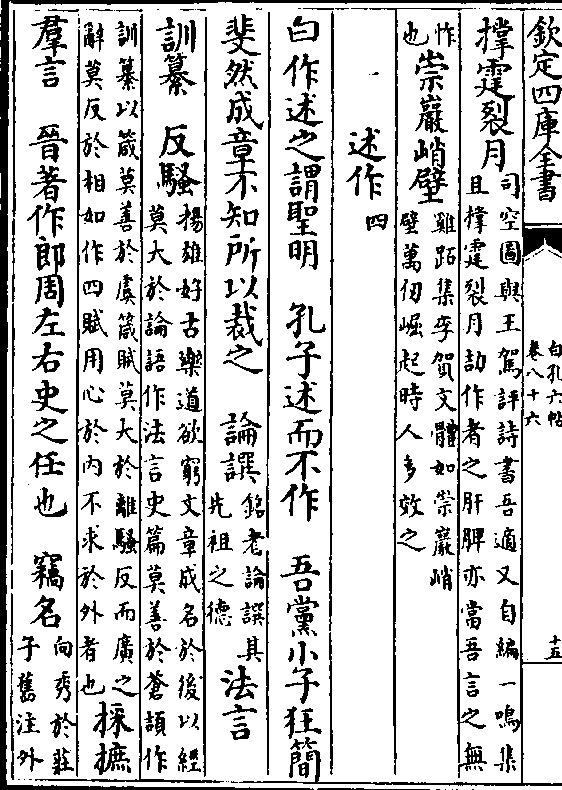 欽定四庫全書
白孔六帖
卷八十六
十五
撑霆裂月司空圖與王駕評詩書吾適又自編一鳴集
且撑霆裂月劼作者之肝脾亦當吾言之無
怍
也崇巖峭壁雞跖集李賀文體如崇巖峭
壁萬仞崛起時人多效之
述作四
白作述之謂聖明 孔子述而不作 吾黨小子狂簡
斐然成章不知所以裁之 論譔銘者論譔其
先祖之德法言
訓纂 反騷揚雄好古樂道欲窮文章成名於後以經
莫大於論語作法言史篇莫善於蒼頡作
訓纂以箴莫善於虞箴賦莫大於離騷反而廣之
辭莫反於相如作四賦用心於内不求於外者也採摭
羣言 晉著作郎周左右史之任也 竊名向秀於莊
子舊注外